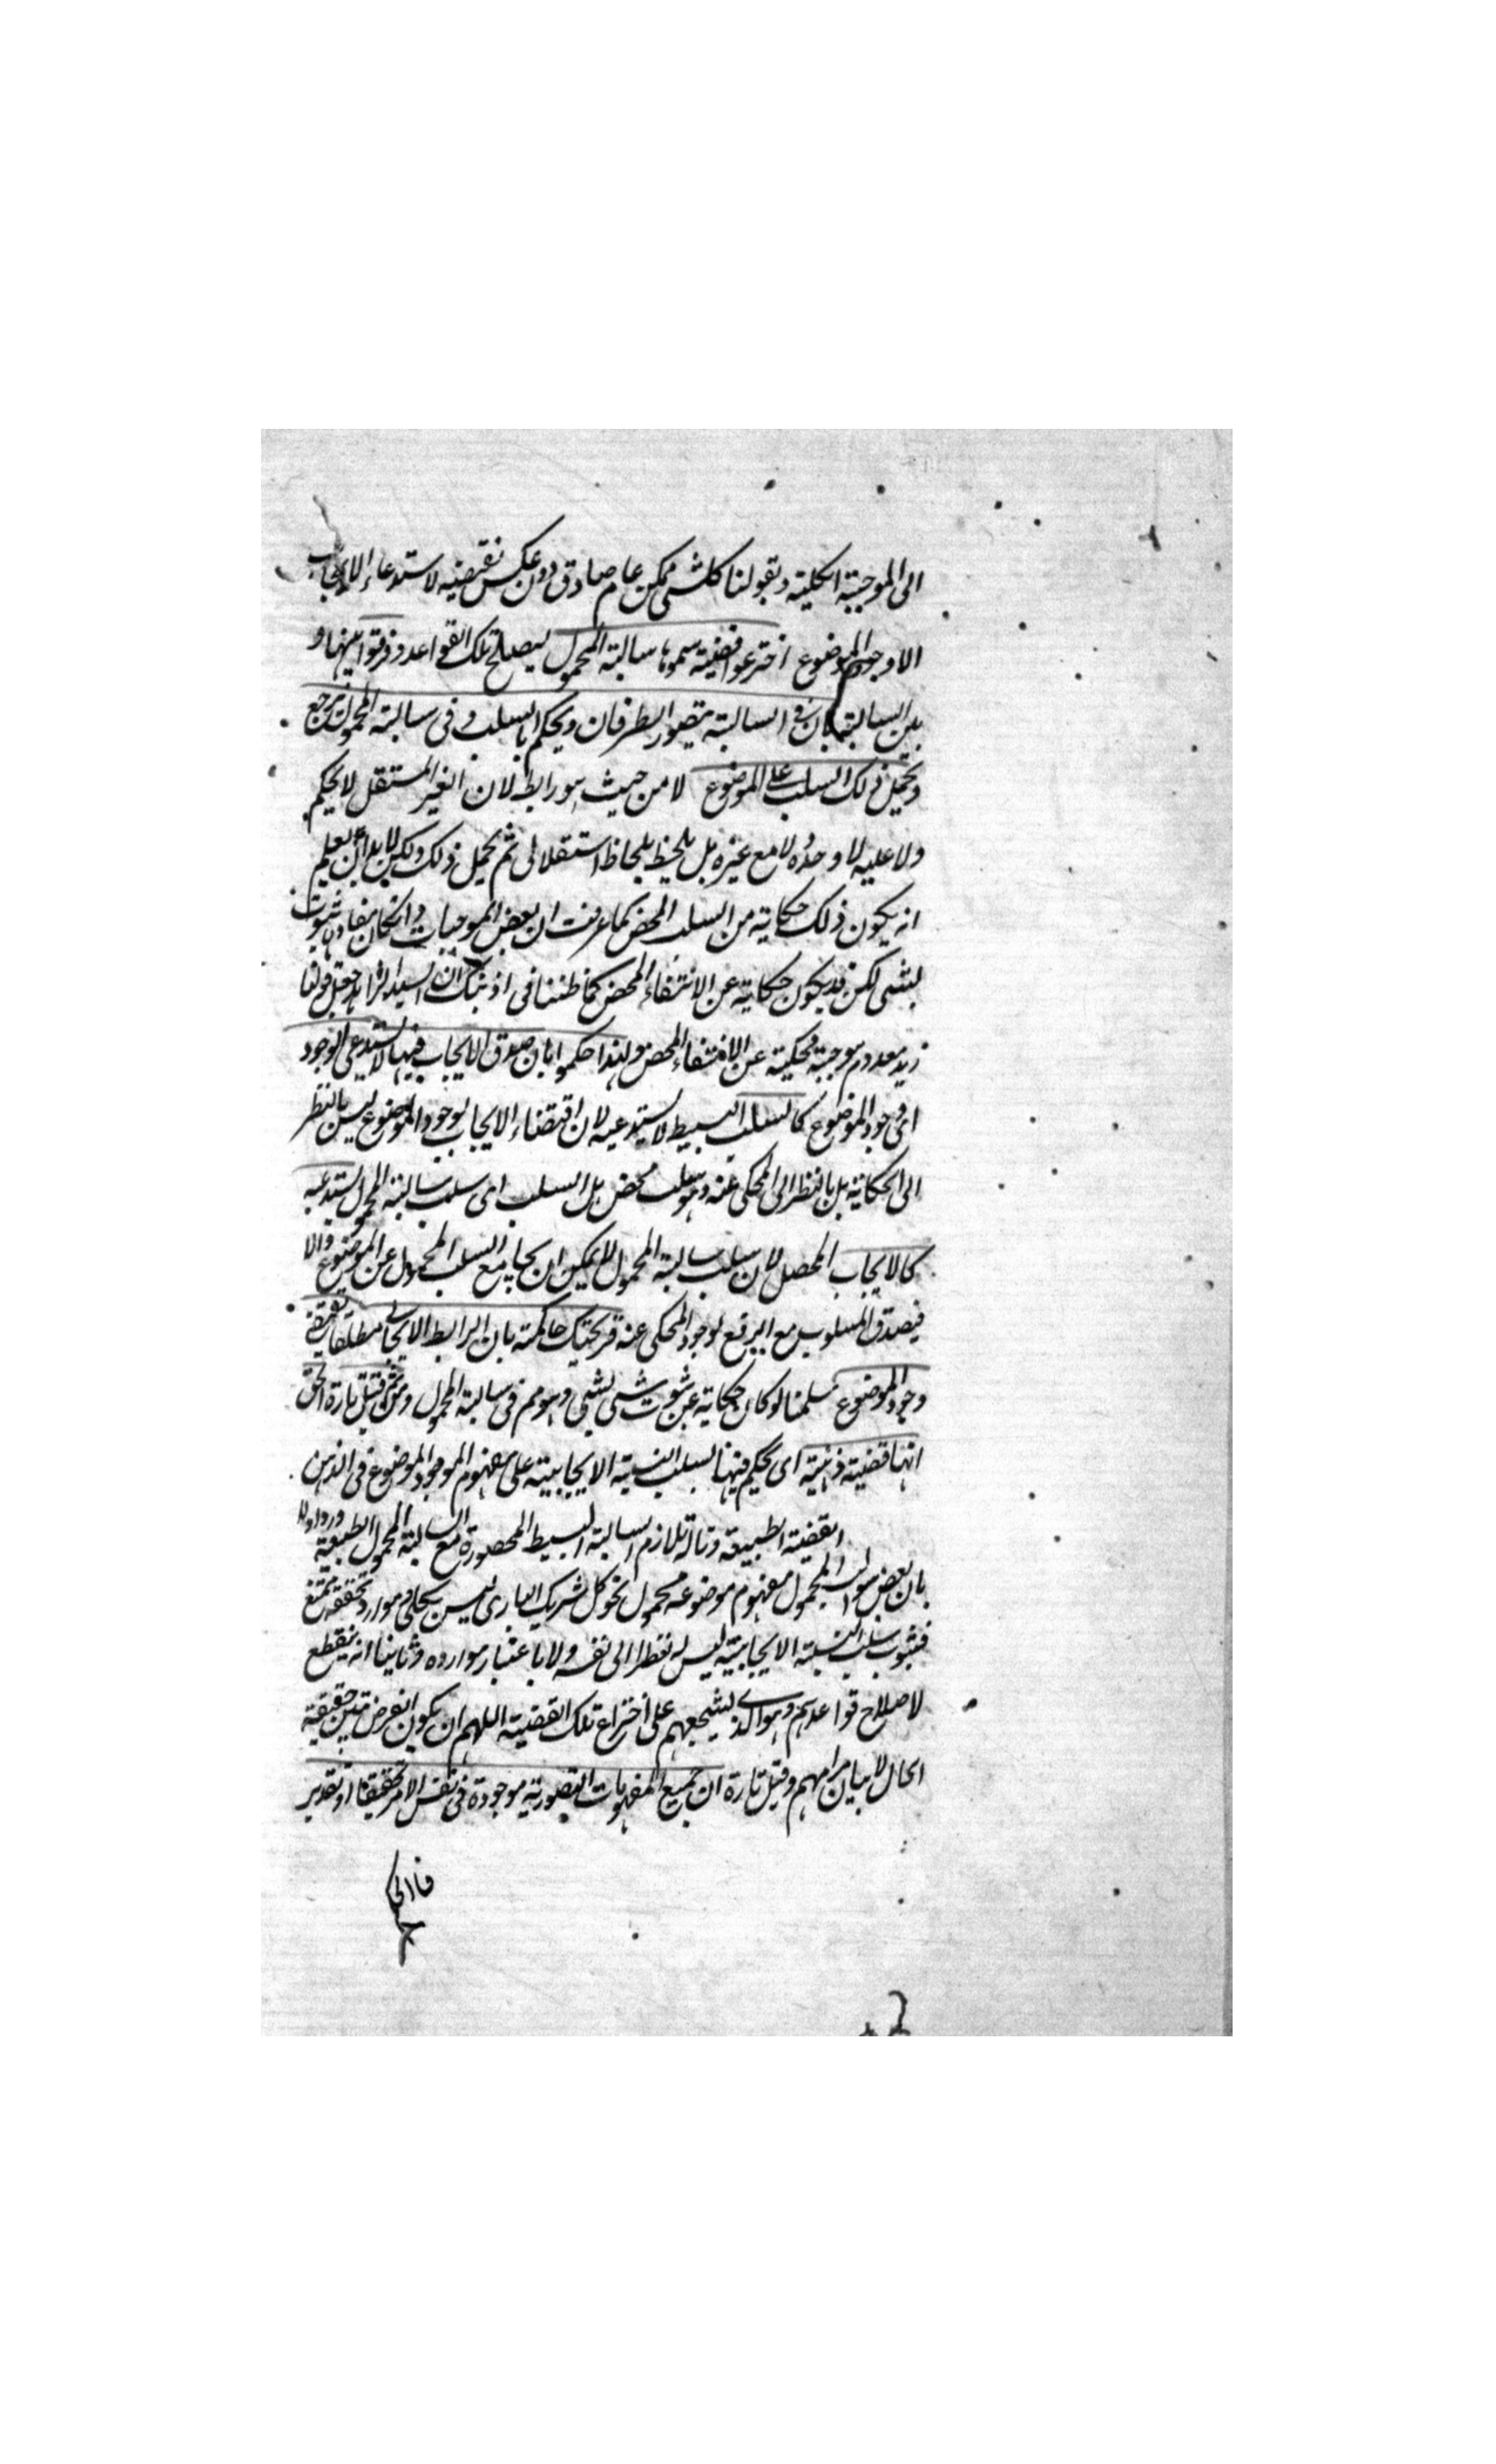 الى الموجبة الكلية وبقولنا كل شى ممكن عام صادق دون عكس نقيضيه لاستدعاء الايجاب
الا وجود الموضوع اخترعوا قضية سموها سالبة المحمول ليصلح تلك القواعد وفرقوا بينها و
بين السالبة بان فى السالبة يتصور الطرفان ويحكم بالسلب و فى سالبة المحمول يرجع
ويحمل ذلك السلب على الموضوع لا من حيث هو رابط لان الغير المستقل لا يحكم
ولا عليه لا وحده لا مع غيره بل يلحظ بلحاظ استقلالى ثم يحمل ذلك ولكن لا بد ان يعلم
انه يكون ذلك حكاية من السلب المحض كما عرفت ان بعض الموجبات وانكان مفادها ثبوت
لشى لكن قد يكون حكاية عن الانتفاء المحض كما ظننا فى اذنيك ان السيد الزاهد جعل قولنا
زيد معدوم موجبة محكية عن الانتفاء المحض ولهذا حكموا بان صدق الايجاب فيها لا يستدعى الوجود
اى وجود الموضوع كالسلب البسيط لا يستدعيه لان اقتضاء الايجاب لوجود الموضوع ليس بالنظر
الى الحكاية بل بالنظر الى المحكى عنه وهو سلب محض بل السلب اى سلب سالبة المحمول يستدعيه
كالايجاب المحصل لان سلب سالبة المحمول لا يمكن ان يجامع السلب المحمول عن الموضوع والا
فيصدق المسلوب مع الرفع لوجود المحكى عنه قريحتك حاكمة بان الرابط الايجابى مطلقا يقتضى
وجود الموضوع سلمنا لو كان حكاية عن ثبوت شى لشى وهو مم فى سالبة المحمول ومن ثم قيل تارة الحق
انها قضية ذهنية اى يحكم فيها بسلب النسبة الايجابية على مفهوم الموجود الموضوع فى الذهن
القضية الطبيعة وتارة تلازم السالبة البسيط المحصورة مع السالبة المحمول الطبيعة ورد اولا
بان بعض سوالب المحمول مفهوم موضوعه محمول نحو كل شريك البارى ليس بكلى وموارد تحققه ممتنع
فثبوت سلب النسبة الايجابية ليس له نظرا الى نفسه ولا باعتبار موارده وثانيا انه ينقطع
لاصلاح قواعدهم وهو الذى يشجعهم على اختراع تلك القضية اللهم ان يكون الغرض تبين حقيقة
الحال لا بيان مرامهم وقيل تارة ان جميع المفهومات التصورية موجودة فى نفس الامر تحقيقا او تقدير